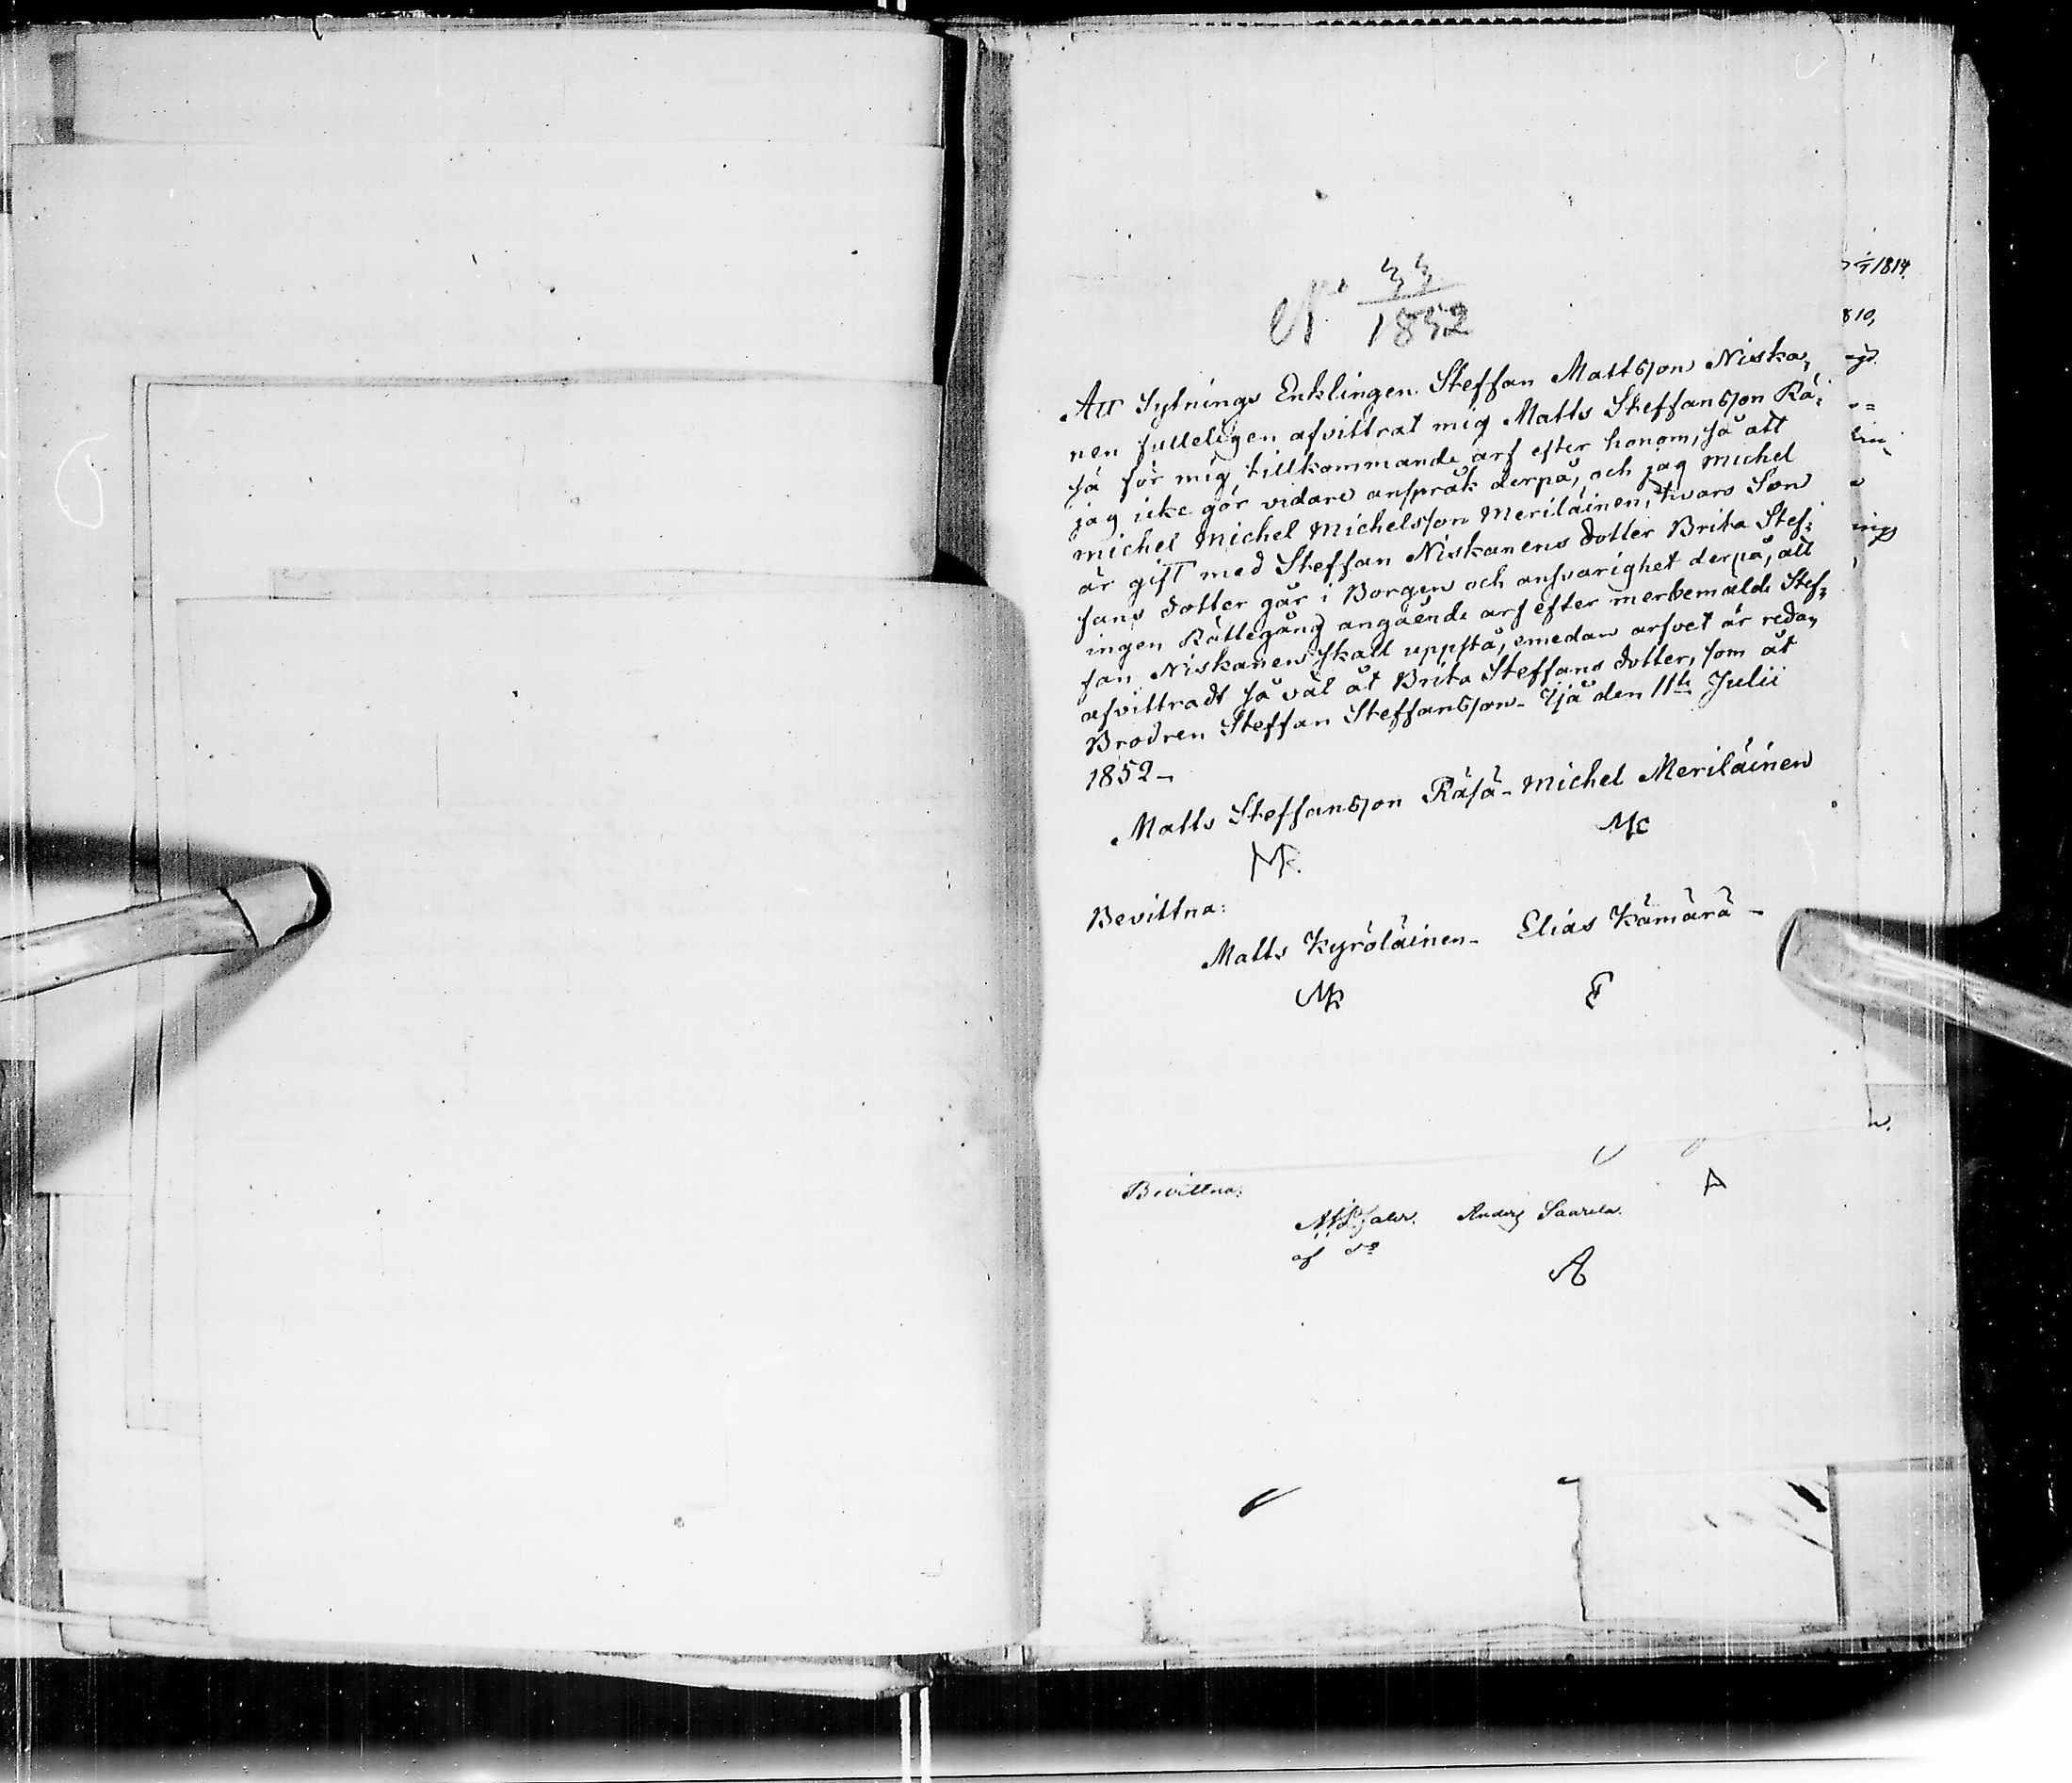 N:o 33
1852
Att Sytnings Enklingen Steffan Mattsson Niska,
nen fulleligen afvittrat mig Matts Steffansson Rä:
sä för mig, tillkommande arf efter honom, så att
jag icke gör vidare anspråk derpå, och jag Michel
michel Michel Michelsson Meriläinen, hvars Son
är gift med Steffan Niskanens dotter Brita Stef:
fans dotter går i Borgen och ansvarighet derpå, att
ingen Rättegång angående arf efter merbemälde Stef:
fan Niskanen skall uppstå, emedan arfvet är redan
afvittradt så väl åt Brita Steffans dotter, som åt
Brodren Steffan Steffansson - Ijå den 11te Julii
1852 -
Matts Steffansson Räsä - Michel Meriläinen
Bevittna:
Matts Kyröläinen - Elias Kämärä -
E
1814.
810,
ings
Bevittna:
A
Anders Saarela.
af
A